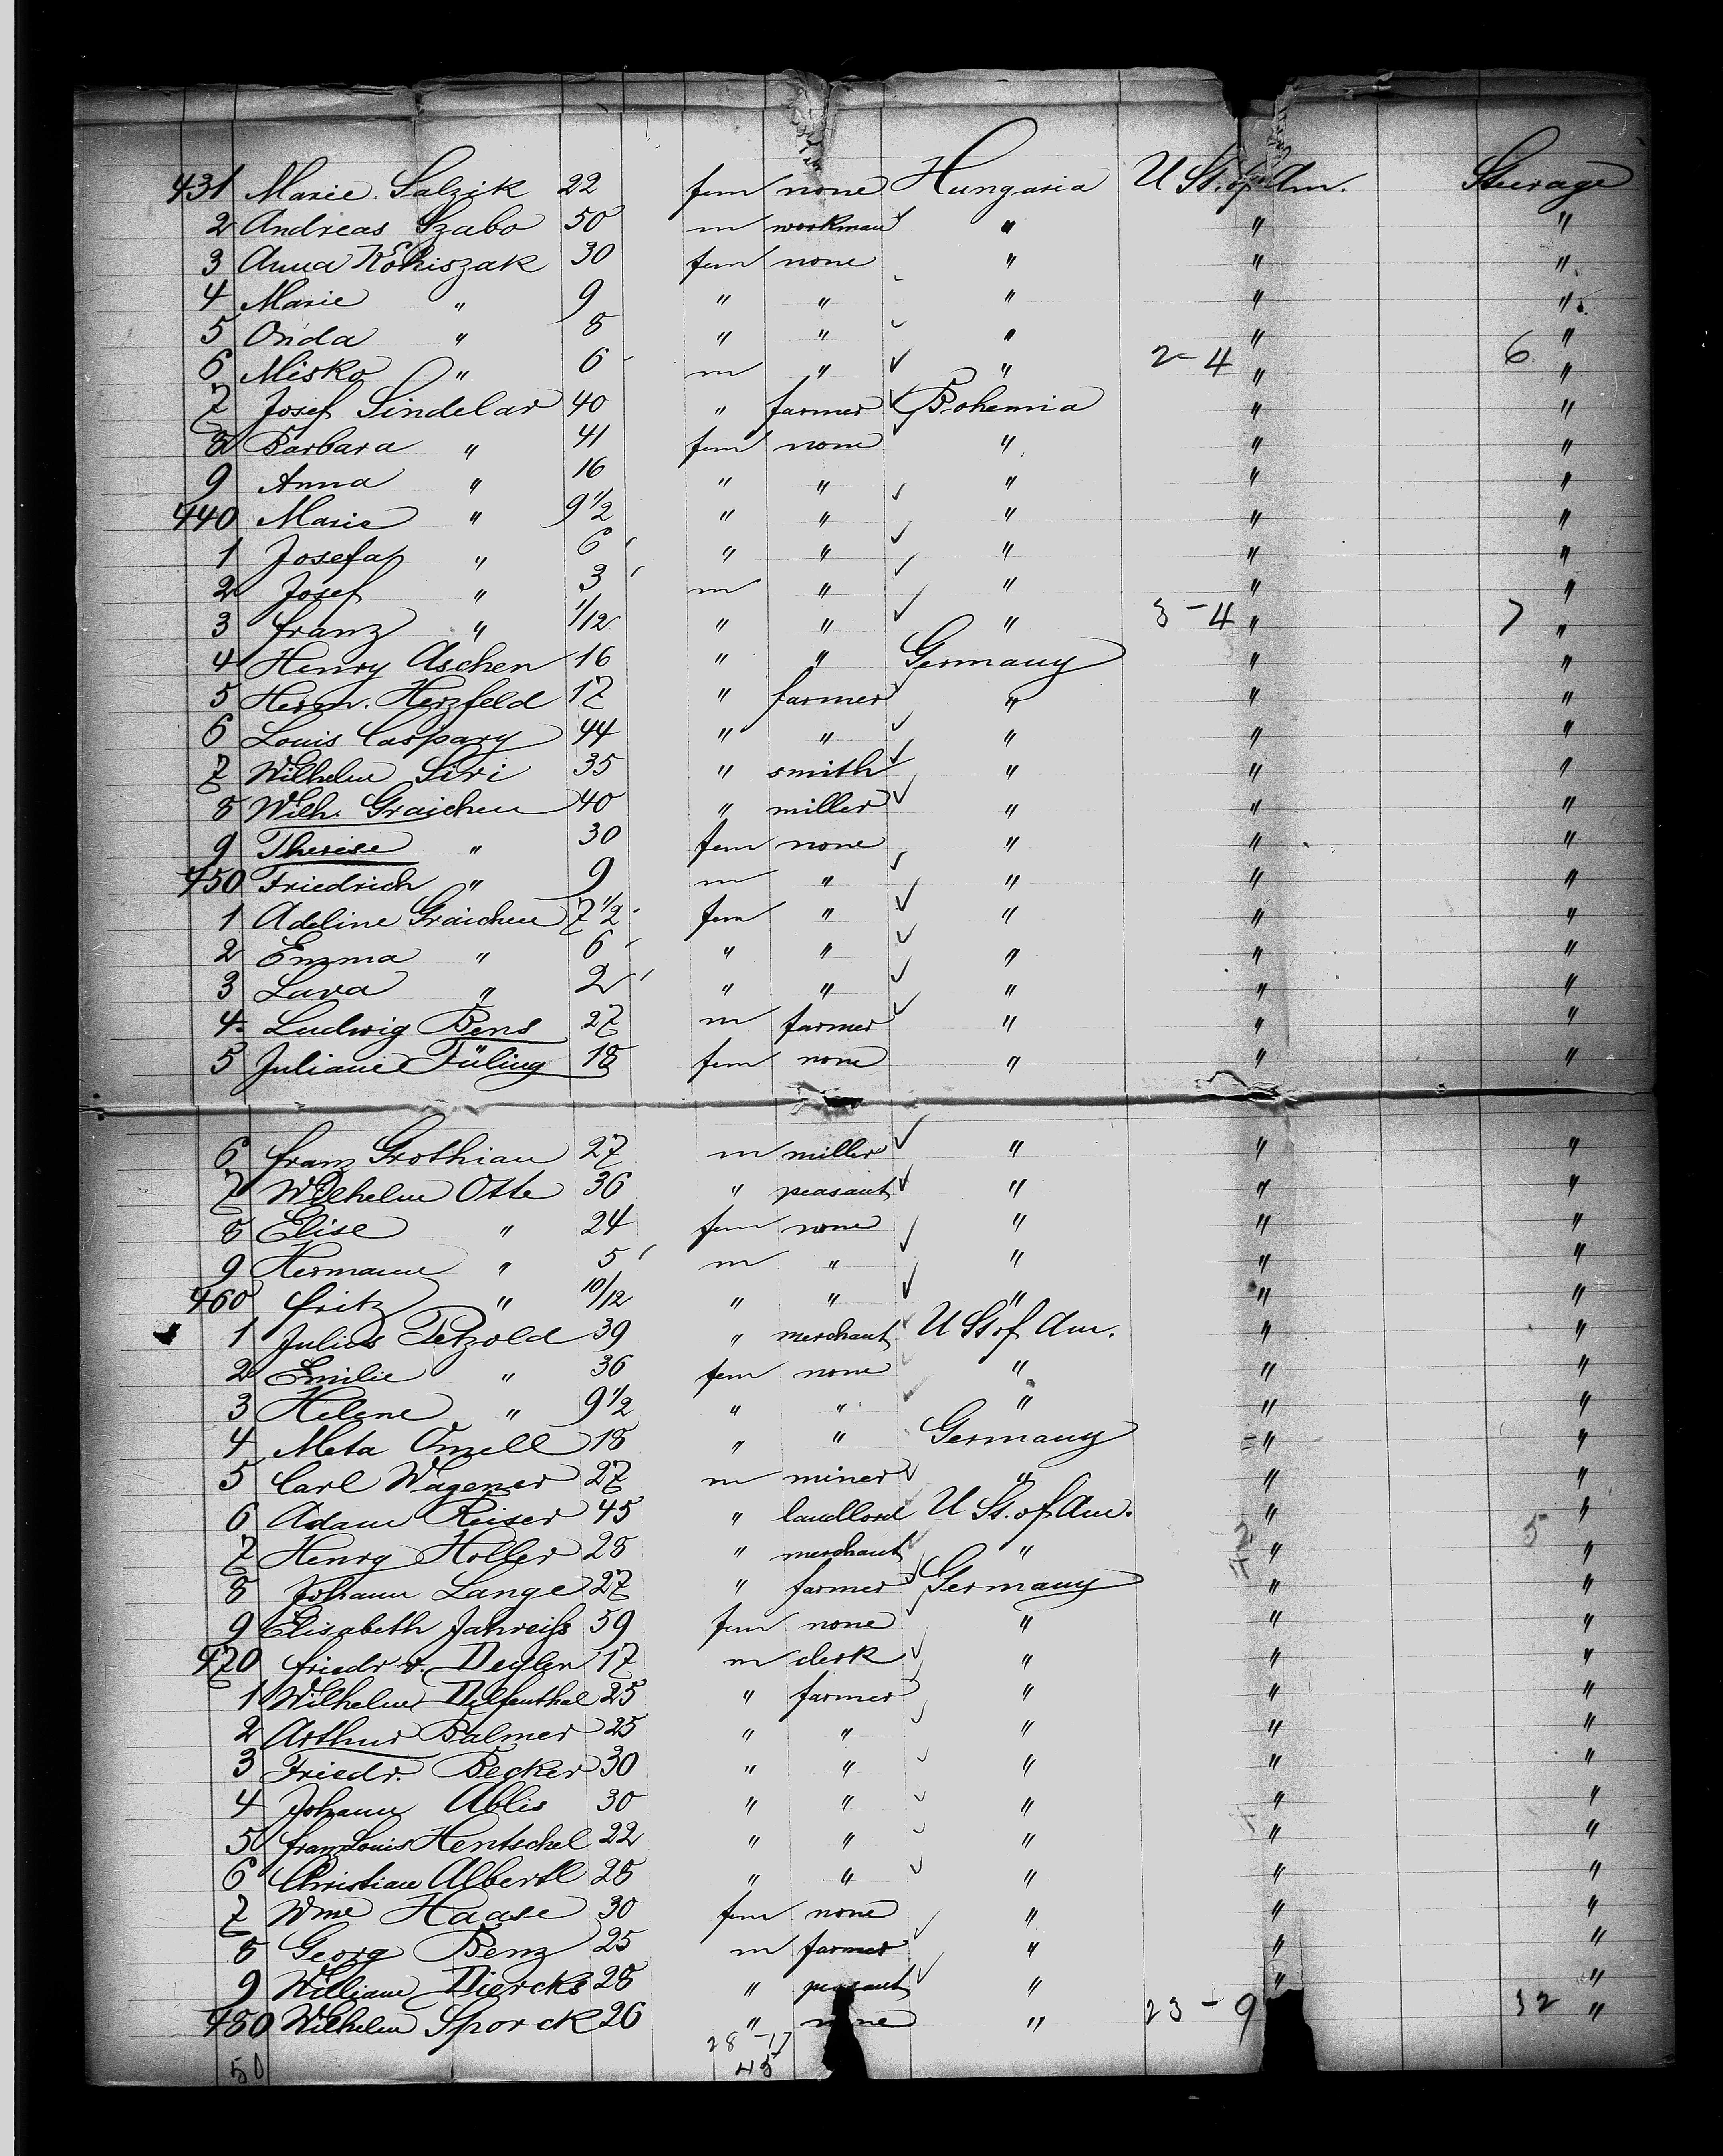 431 Marie. Salzik 22 fem none Hungaria U St. of Am. Steerage
2 Andreas Szabo 50 m workman " " "
3 Anna Kohiszak 30 fem none " " "
4 Marie " 9 " " " " "
5 Onda " 8 " " " " "
6 Misko " 6 m " " 2-4 " 6 "
7 Josef Sindelar 40 " farmer Bohemia " "
8 Barbara " 41 fem none " " "
9 Anna " 16 " " " " "
440 Marie " 9 1/2 " " " " "
1 Josefa " 6 " " " " "
2 Josef " 3 m " " " "
3 Franz " 1/12 " " " 3-4 " 7 "
4 Henry Aschen 16 " " Germany " "
5 Herm. Herzfeld 17 " farmer " " "
6 Louis Caspary 44 " " " " "
7 Wilhelm Siri 35 " smith " " "
8 Wilh. Graichen 40 " miller " " "
9 Therese " 30 fem none " " "
450 Friedrich " 9 m " " " "
1 Adeline Graichen 7 1/2 fem " " " "
2 Emma " 6 " " " " "
3 Lara " 2 " " " " "
4. Ludwig Bens 27 m farmer " " "
5 Juliane Füling 18 fem none " " "
6 Franz Grothian 27 m miller " " "
7 Wilhelm Otte 36 " peasant " " "
8 Elise " 24 fem none " " "
9 Hermann " 5 m " " " "
460 Fritz " 10/12 " " " " "
1 Julius Petzold 39 " merchant U St of Am. " "
2 Emilie " 36 fem none " " "
3 Helene " 9 1/2 " " " " "
4 Meta Omell 18 " " Germany " "
5 Carl Wagener 27 m miner " " "
6 Adam Reiser 45 " landlord U St. of Am. " "
7 Henry Holler 28 " merchant " " 5 "
8 Johann Lange 27 " farmer Germany " "
9 Elisabeth Jahreiss 59 fem none " " "
470 Friedr v. Deylen 17 m clerk " " "
1 Wilhelm Delfenthal 25 " farmer " " "
2 Arthur Balmer 25 " " " " "
3 Friedr. Becker 30 " " " " "
4 Johann Ablis 30 " " " " "
5 Franz Louis Hentschel 22 " " " " "
6 Christian Albertl 28 " " " " "
7 Wme Haase 30 fem none " " "
8 Georg Benz 25 m farmer " " "
9 William Diercks 28 " peasant " " "
480 Wilhelm Sporck 26 " none " 23-9 32 "
50 28-17
45